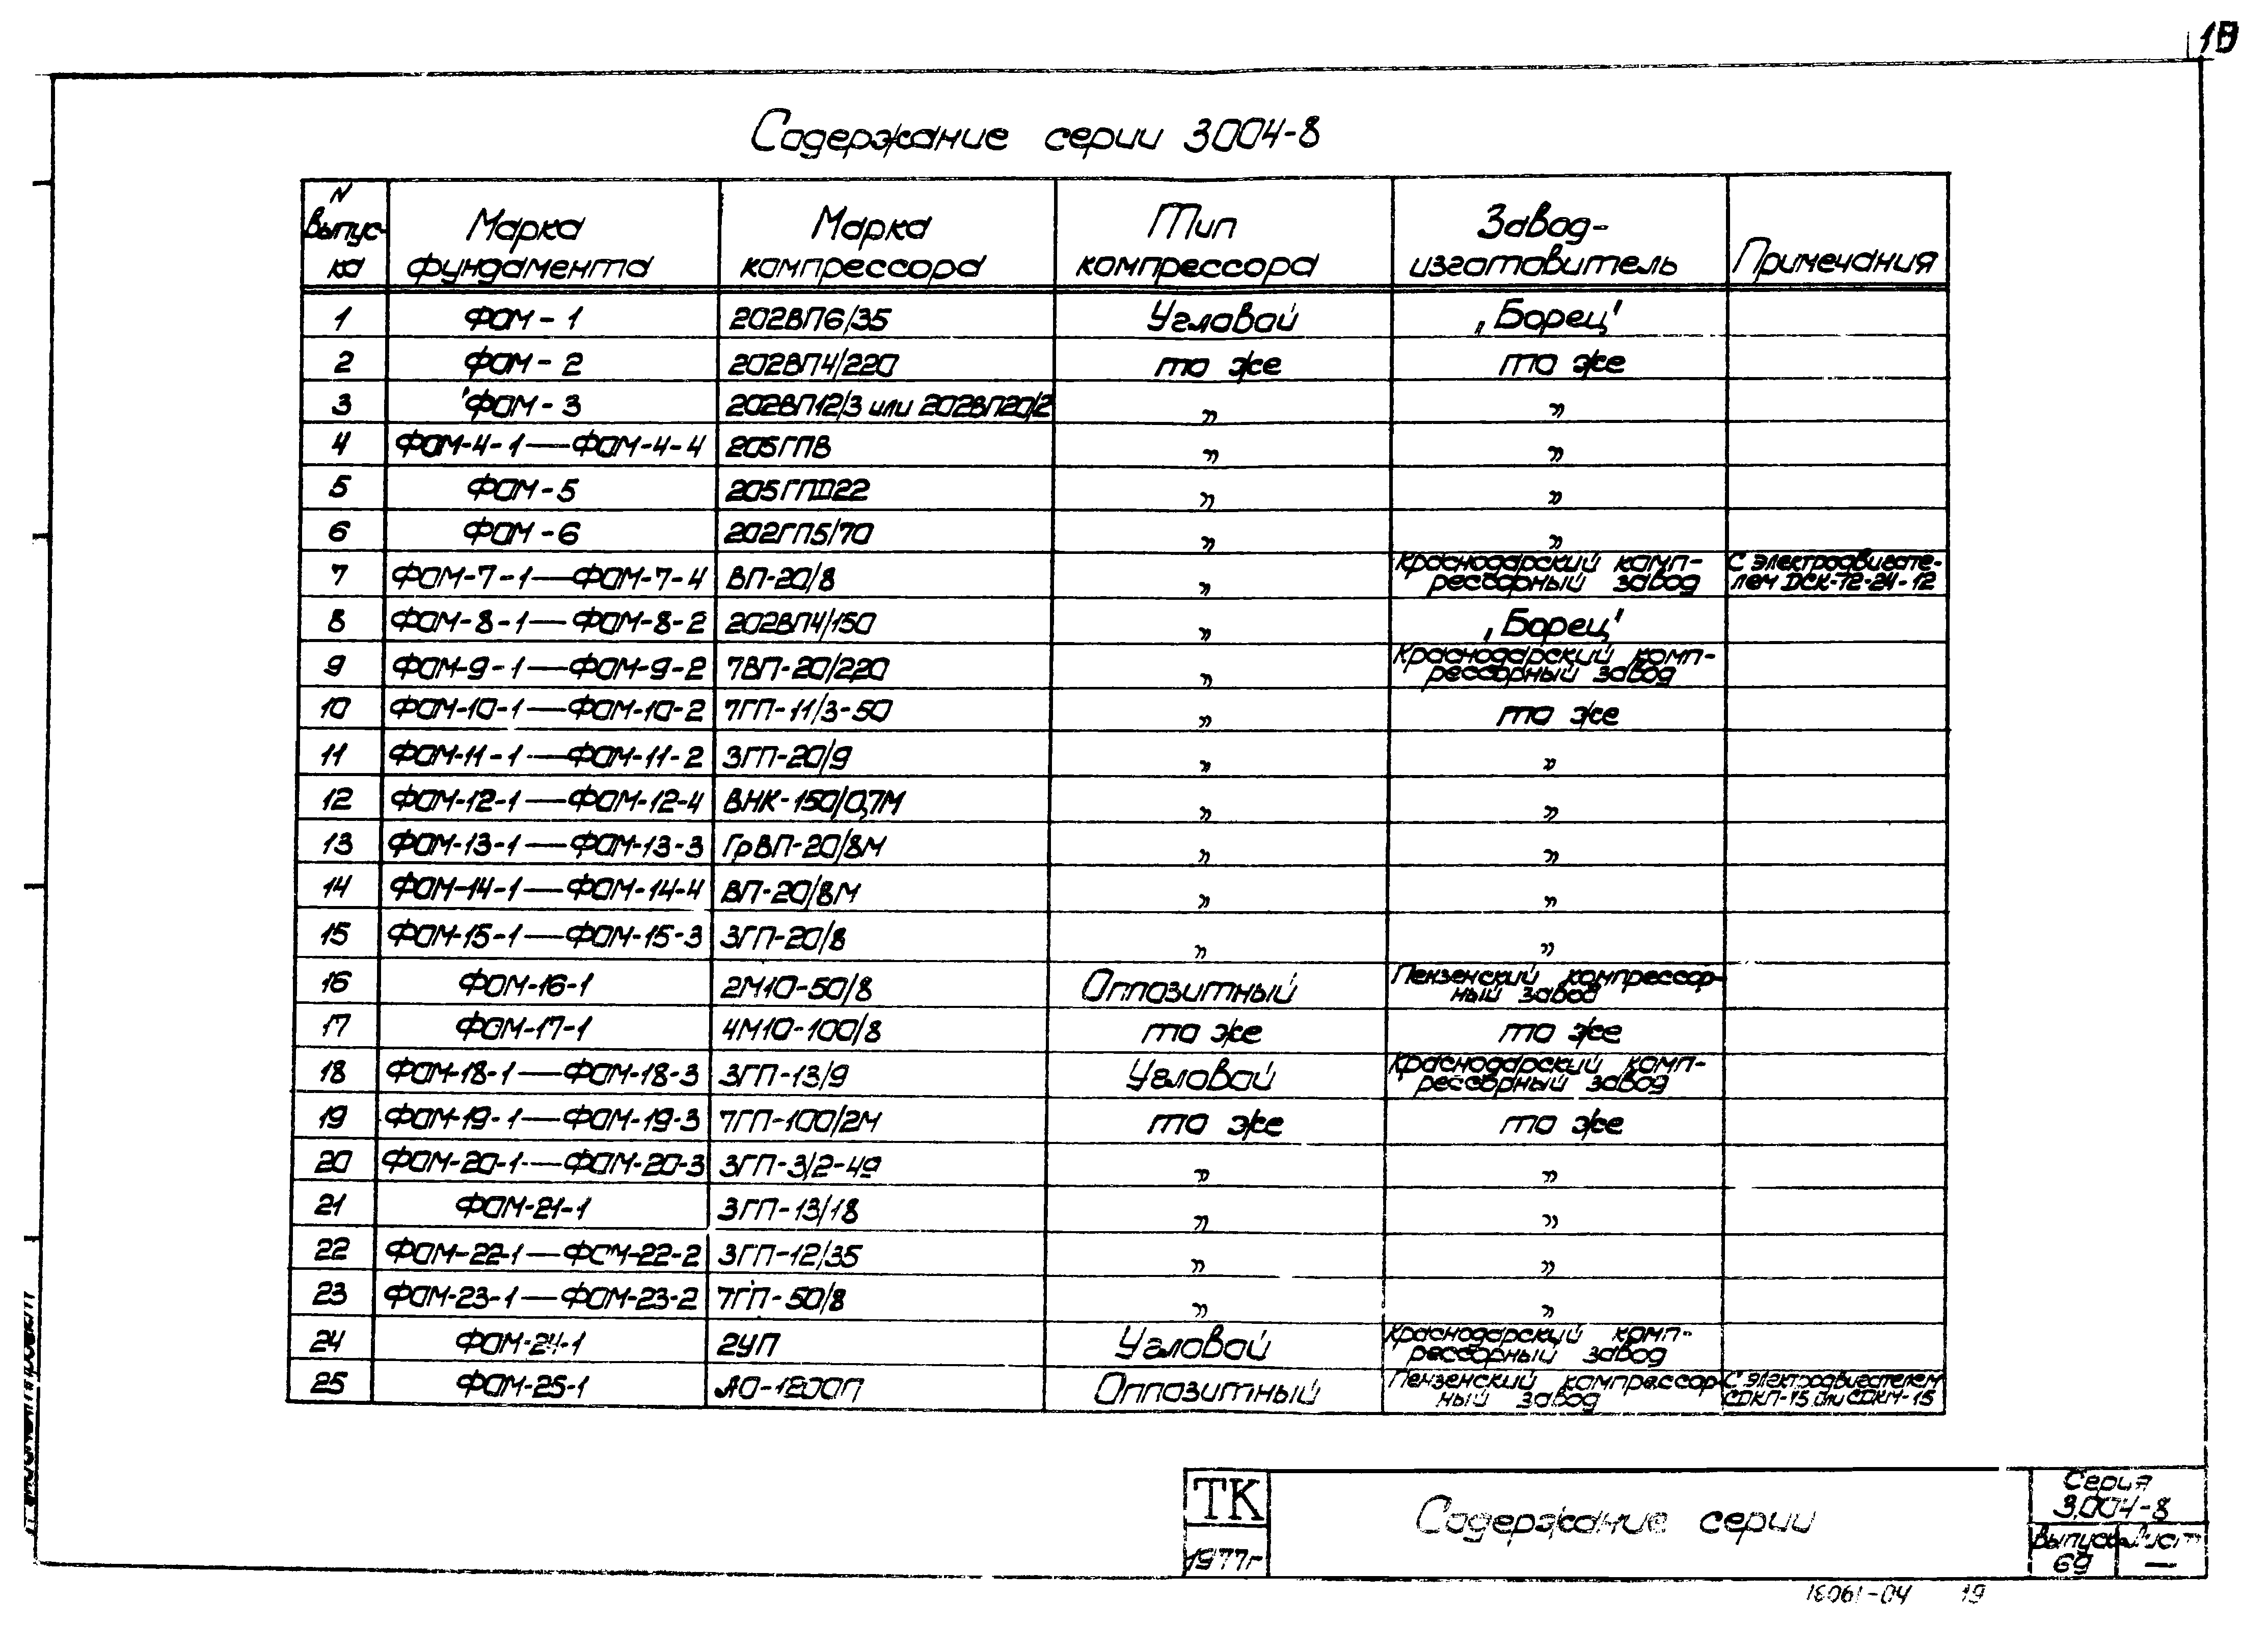 18
Содержание серии 3004-8
N выпуска | Марка фундамента | Марка компрессора | Тип компрессора | Завод-изготовитель | Примечания
1 | ФОМ-1 | 202ВП6/35 | Угловой | „Борец"
2 | ФОМ-2 | 202ВП4/220 | то же | то же
3 | ФОМ-3 | 202ВП12/3 или 202ВП20/2 | „ | „
4 | ФОМ-4-1—ФОМ-4-4 | 205ГПВ | „ | „
5 | ФОМ-5 | 205ГПД22 | „ | „
6 | ФОМ-6 | 202ГП5/70 | „ | „
7 | ФОМ-7-1—ФОМ-7-4 | ВП-20/8 | „ | Краснодарский комп-рессорный завод | С электродвигате-лем ДСК-72-24-12
8 | ФОМ-8-1—ФОМ-8-2 | 202ВП4/150 | „ | „Борец"
9 | ФОМ-9-1—ФОМ-9-2 | 7ВП-20/220 | „ | Краснодарский комп-рессорный завод
10 | ФОМ-10-1—ФОМ-10-2 | 7ГП-11/3-50 | „ | то же
11 | ФОМ-11-1—ФОМ-11-2 | 3ГП-20/9 | „ | „
12 | ФОМ-12-1—ФОМ-12-4 | ВНК-150/0,7М | „ | „
13 | ФОМ-13-1—ФОМ-13-3 | ГрВП-20/8М | „ | „
14 | ФОМ-14-1—ФОМ-14-4 | ВП-20/8М | „ | „
15 | ФОМ-15-1—ФОМ-15-3 | 3ГП-20/8 | „ | „
16 | ФОМ-16-1 | 2М10-50/8 | Оппозитный | Пензенский компрессор-ный завод
17 | ФОМ-17-1 | 4М10-100/8 | то же | то же
18 | ФОМ-18-1—ФОМ-18-3 | 3ГП-13/9 | Угловой | Краснодарский комп-рессорный завод
19 | ФОМ-19-1—ФОМ-19-3 | 7ГП-100/2М | то же | то же
20 | ФОМ-20-1—ФОМ-20-3 | 3ГП-3/2-49 | „ | „
21 | ФОМ-21-1 | 3ГП-13/18 | „ | „
22 | ФОМ-22-1—ФОМ-22-2 | 3ГП-12/35 | „ | „
23 | ФОМ-23-1—ФОМ-23-2 | 7ГП-50/8 | „ | „
24 | ФОМ-24-1 | 2УП | Угловой | Краснодарский комп-рессорный завод
25 | ФОМ-25-1 | АО-1200П | Оппозитный | Пензенский компрессор-ный завод | С электродвигателем СДКП-15 или СДКМ-15
ТК
1977г
Содержание серии
Серия
3.004-8
Выпуск Лист
69 —
16061-04 19